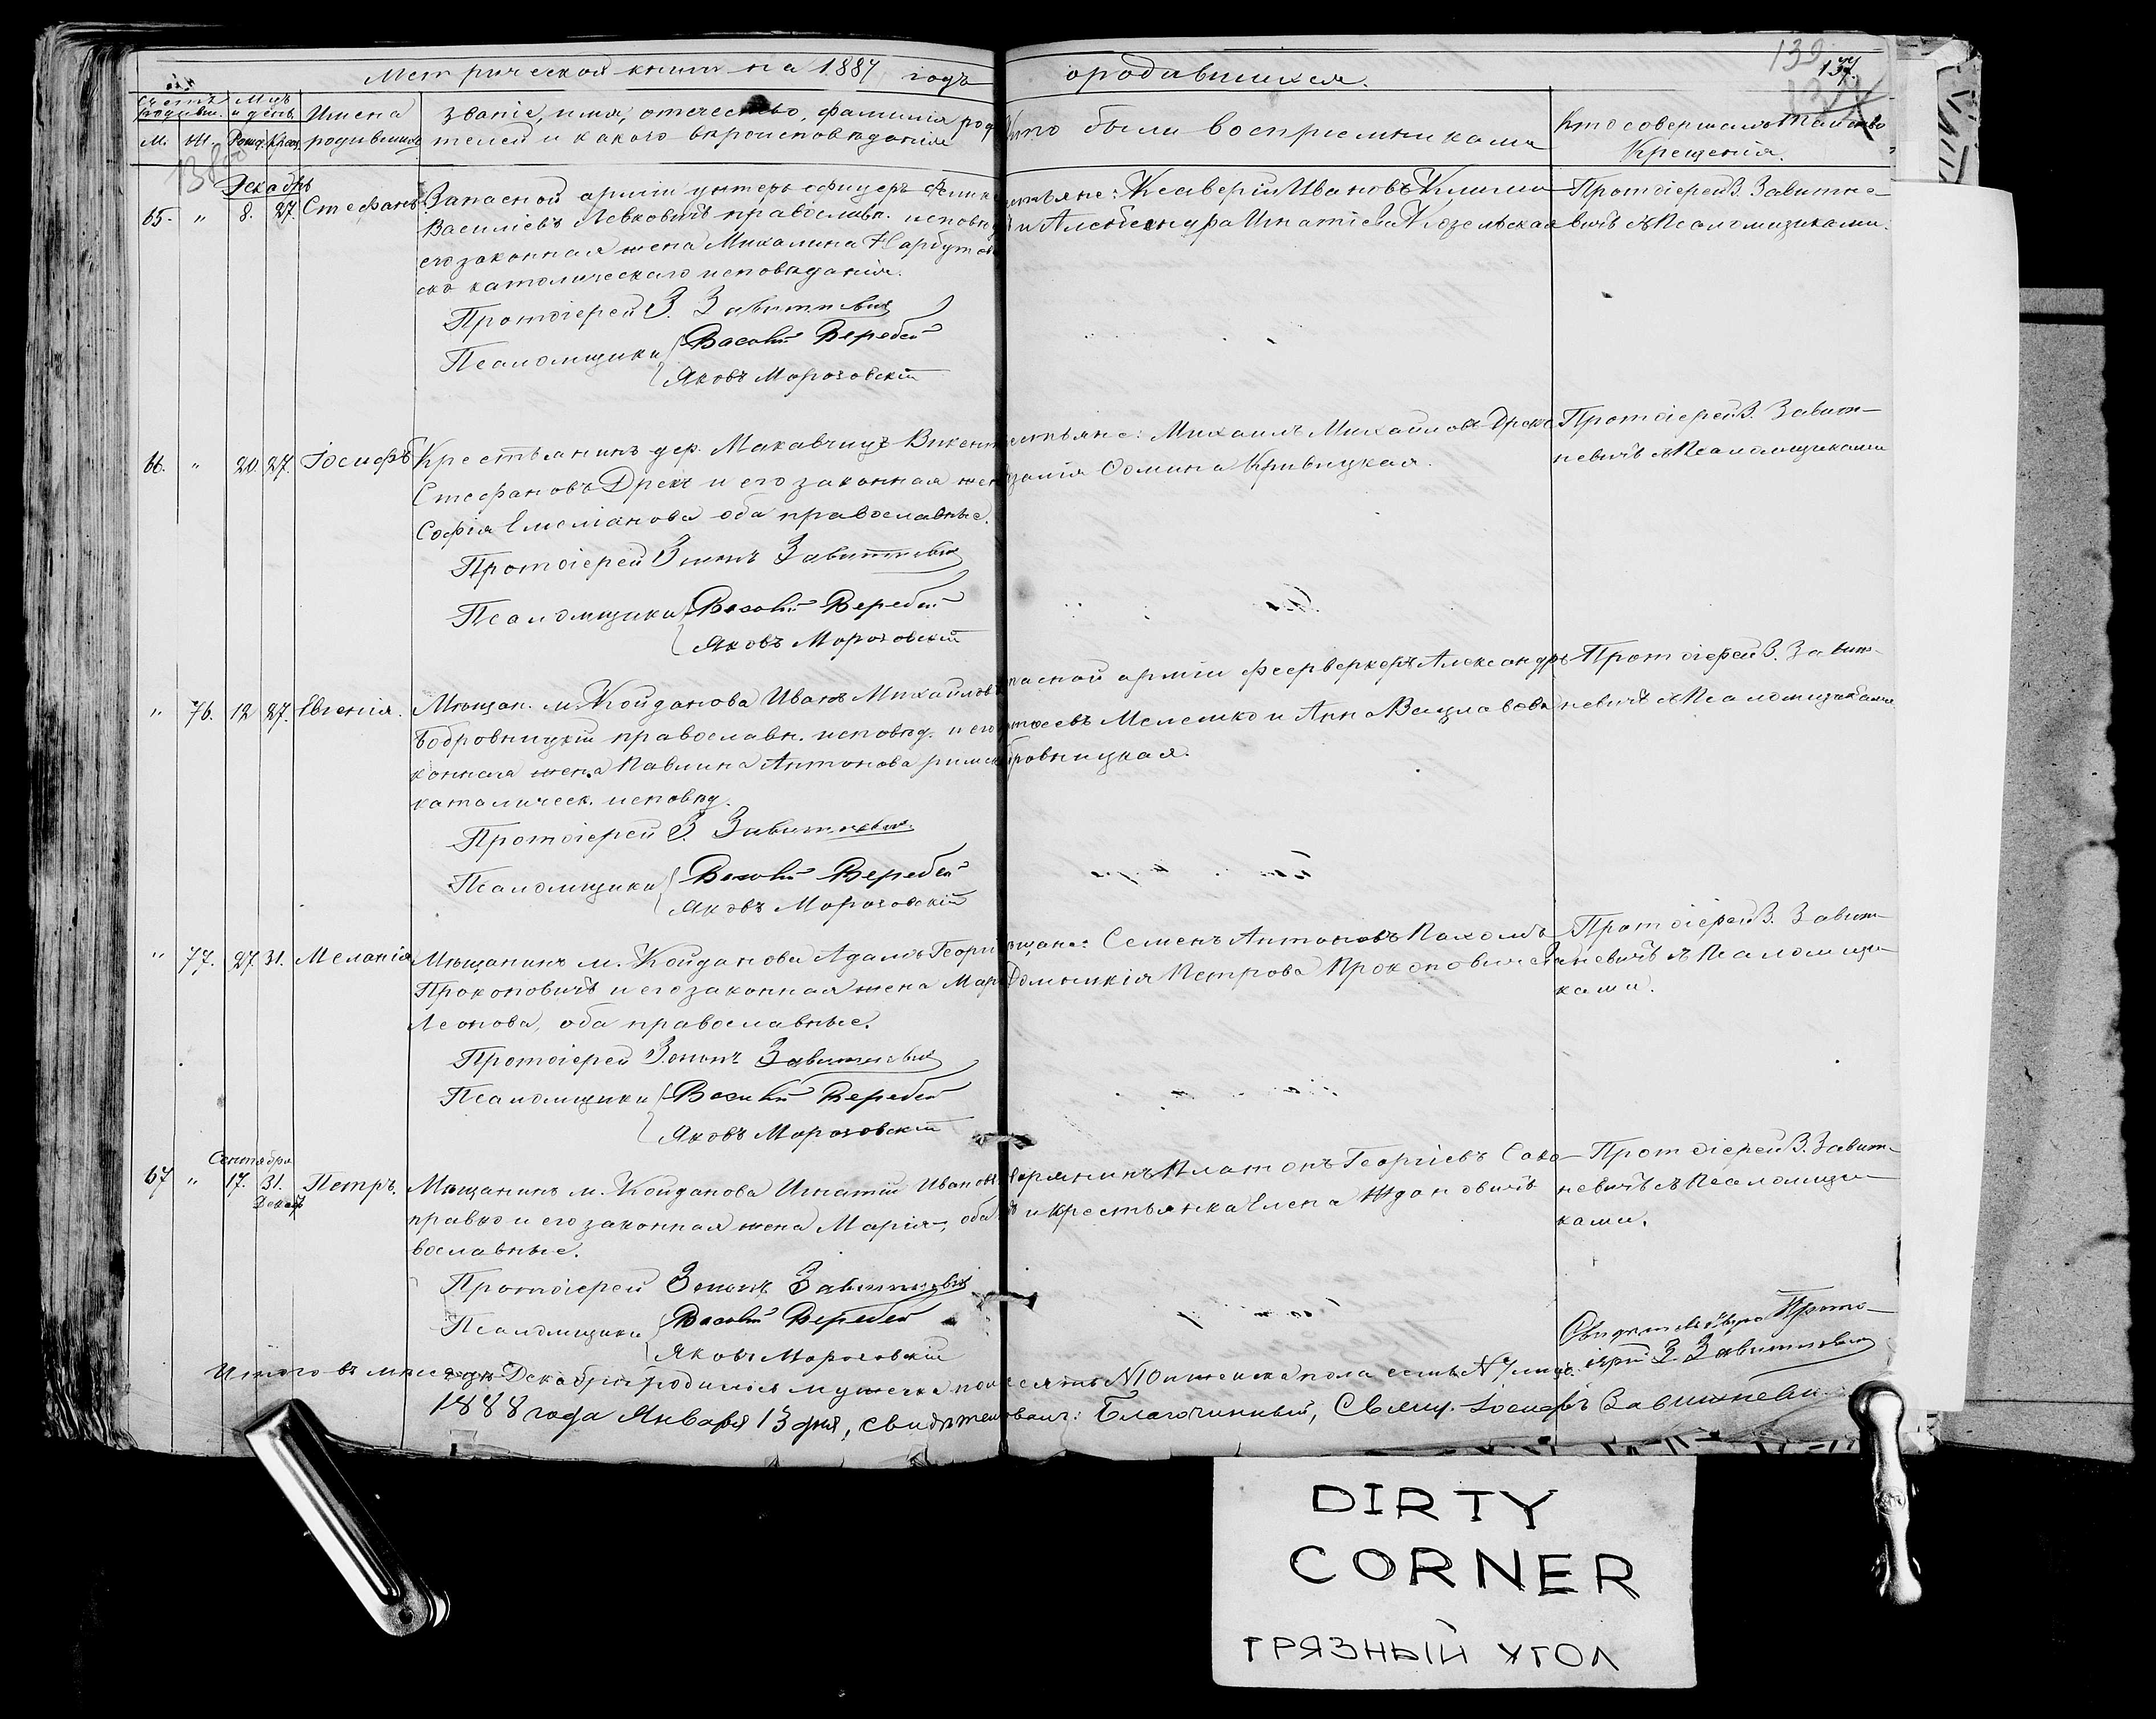 Метрической книги на 1887 годъ
о родившихся.
139
137.
Счетъ родивш.
Мцъ и день.
М.
Ж.
Рожд.
Крещ.
Имена
родившихся
Званіе, имя, отечество, фамилія роди
телей и какого вѣроисповѣданія
Кто были воспріемниками
Кто совершалъ таинство
Крещенія.
138
Декабрь
65. " 8. 27. Стефанъ.
Запасной арміи унтеръ офицеръ
Василіевъ Левковичъ православн. исповѣд
его законная жена Михалина Нарбутов
ско католическаго исповѣданія.
Протоіерей З. Завитневичъ
Псаломщики Василій Веребей
Яковъ Морозовскій
Ксаверій Ивановъ Клима
и Александра Игнатіева Козельская
Протоіерей З. Завитне-
вичъ съ Псаломщиками.
66. " 20. 27. Іосифъ
Крестьянинъ дер. Макавчицъ Викент
Стефановъ Дрекъ и его законная жен
Софія Емеліанова оба православные.
Протоіерей Зенонъ Завитневичъ
Псаломщики Василій Веребей
Яковъ Морозовскій
естьяне: Михаилъ Михайловъ Дрекъ
Домина Кривицкая.
Протоіерей З. Завит-
невичъ съ Псаломщиками
" 76. 12 27. Евгенія.
Мѣщан. м. Койданова Иванъ Михайловъ
Бобровницкій православн. исповѣд. и его
конная жена Павлина Антонова римск
католическ. исповѣд.
Протоіерей З. Завитневичъ
Псаломщики Василій Веребей
Яковъ Морозовскій
пасной арміи фейерверкеръ Александръ
Мелешко и Анна Вацлавова
бровницкая.
Протоіерей З. Завит-
невичъ съ Псаломщиками
" 77. 27. 31. Меланія
Мѣщанинъ м. Койданова Адамъ Георгі
Прокоповичъ и его законная жена Мар
Леонова, оба православные.
Протоіерей Зенонъ Завитневичъ
Псаломщики Василій Веребей
Яковъ Морозовскій
щане: Семенъ Антоновъ Пахомъ
Домникія Петрова Прокоповичева
Протоіерей З. Завит-
невичъ съ Псаломщи-
ками.
Сентября
67 " 17. 31. Петръ.
Декаб
Мѣщанинъ м. Койданова Игнатій Иванов
правко и его законная жена Марія, оба
вославные.
Протоіерей Зенонъ Завитневичъ
Псаломщики Василій Веребей
Яковъ Морозовскій
орянинъ Платонъ Георгіевъ Сава
и крестьянка Елена Ждановичъ
Протоіерей З. Завит-
невичъ съ Псаломщи-
ками.
Свидѣтельствую Прото-
іерей З. Завитневичъ
Итого въ мѣсяцѣ Декабрѣ родилось мужеска пола десять № 10 и женска пола семь № 7 лицъ.
1888 года Января 13 дня, свидѣтельствовалъ: Благочинный, Свящ. Іосифъ Завитневичъ
DIRTY
CORNER
ГРЯЗНЫЙ УГОЛ